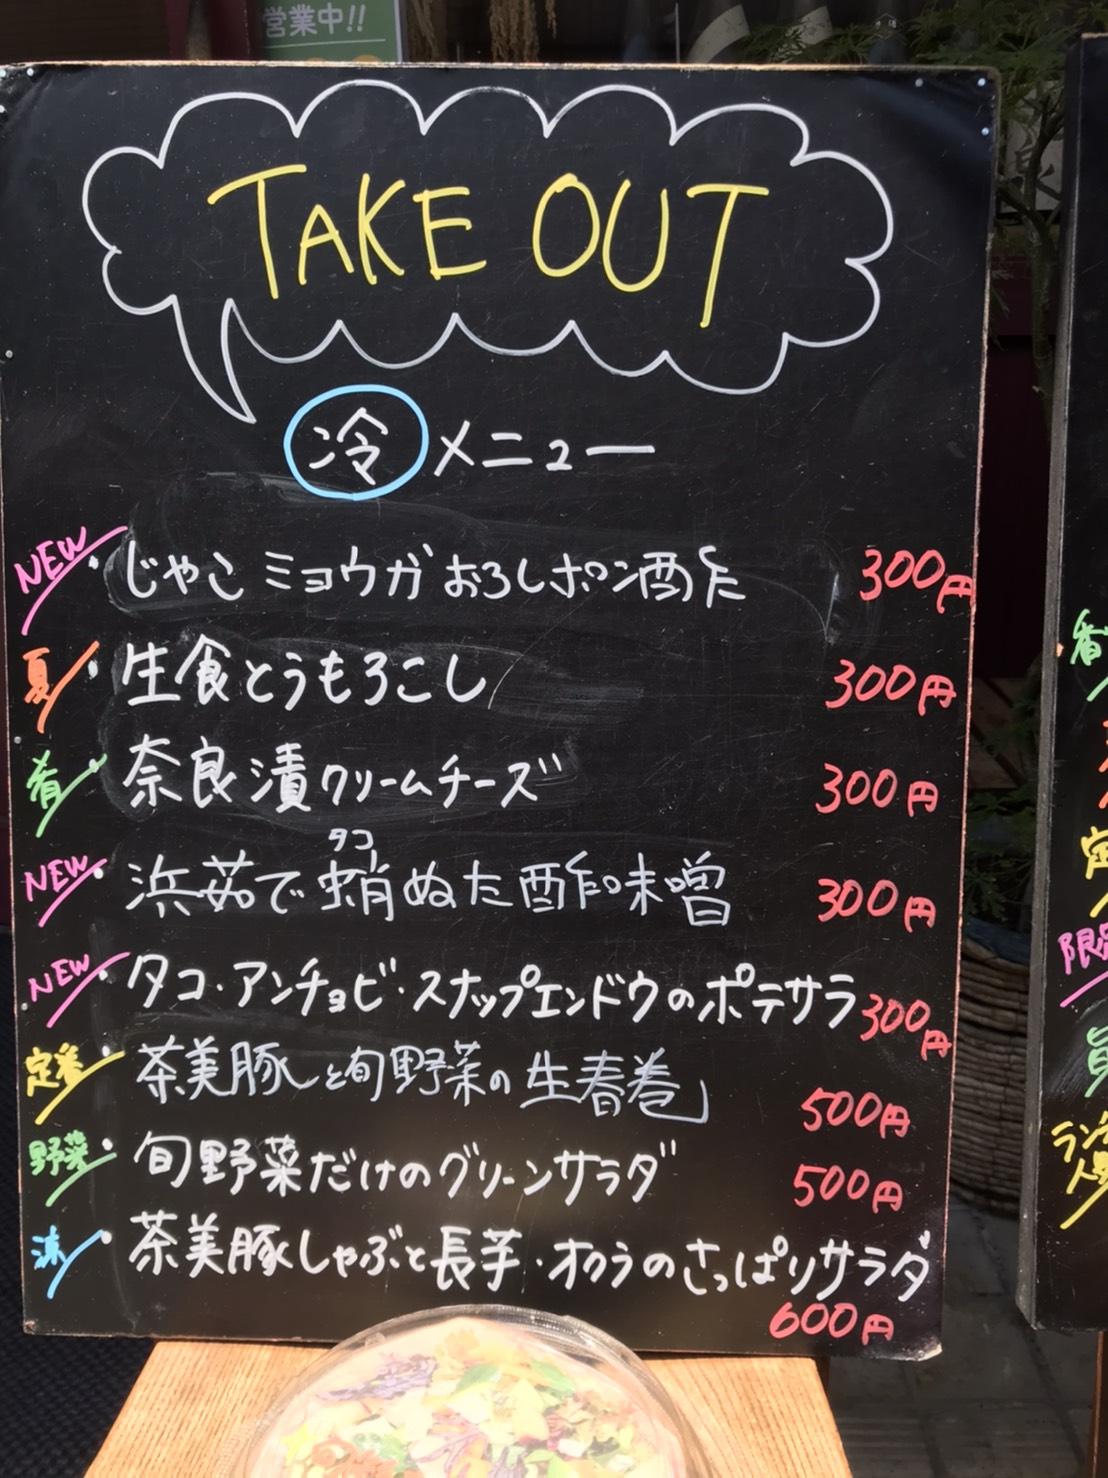 営業中!!
TAKE OUT
冷メニュー
NEW ・じゃこ ミョウガ おろしポン酢 300円
夏 ・生食とうもろこし 300円
肴 ・奈良漬クリームチーズ 300円
タコ
NEW ・浜茹で蛸ぬた酢味噌 300円
NEW ・タコ・アンチョビ・スナップエンドウのポテサラ 300円
定番 ・茶美豚と旬野菜の生春巻 500円
野菜 ・旬野菜だけのグリーンサラダ 500円
涼 ・茶美豚しゃぶと長芋・オクラのさっぱりサラダ
600円
限
ランチ
人